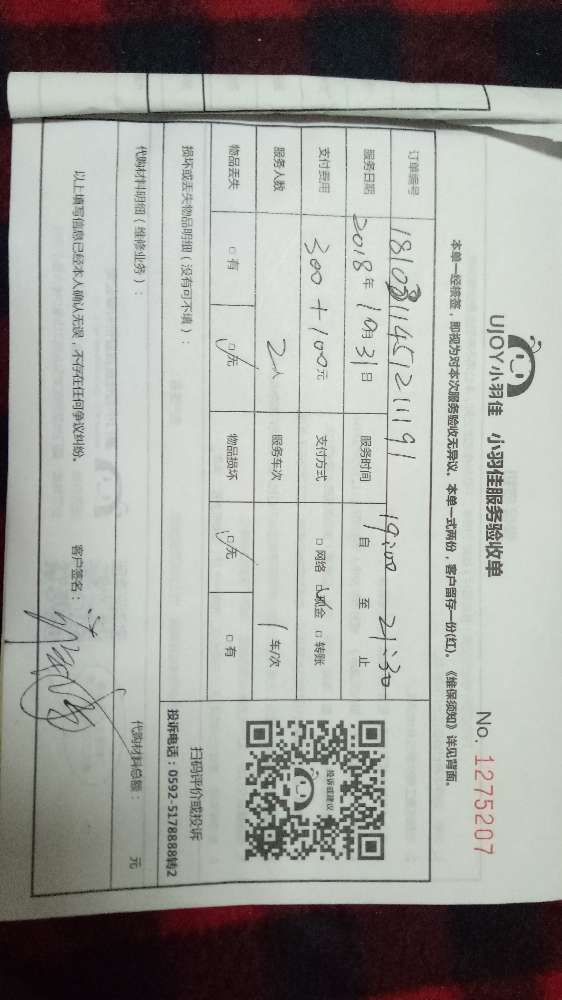 UJOY小羽佳 小羽佳服务验收单
No. 1275207
本单一经接签，即视为对本次服务验收无异议。本单一式两份，客户留存一份(红)。《维保须知》详见背面。
订单编号
服务日期 2018年10月31日 服务时间 19:00 自 至 21:30 止
支付费用 300+100元 支付方式 □网络 □现金 □转账
服务人数 2人 服务车次 1车/次
物品丢失 □有 □无 物品损坏 □无 □有
损坏或丢失物品明细（没有可不填）：
代购材料明细（维修业务）： 代购材料总额： 元
以上填写信息已经本人确认无误，不存在任何争议纠纷。 客户签名：
投诉或建议
扫码评价或投诉
投诉电话：0592-5178888转2